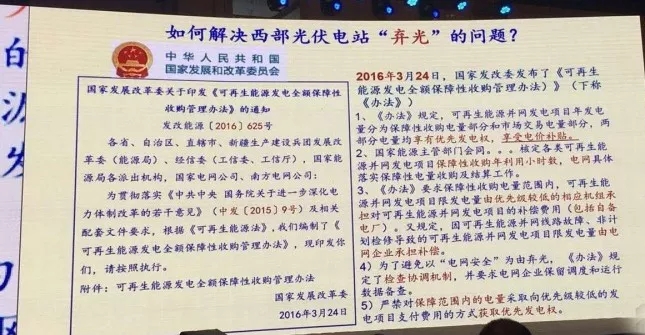 如何解决西部光伏电站“弃光”的问题？
中华人民共和国
国家发展和改革委员会
国家发展改革委关于印发《可再生能源发电全额保障性
收购管理办法》的通知
发改能源〔2016〕625号
各省、自治区、直辖市、新疆生产建设兵团发展改
革委（能源局）、经信委（工信委、工信厅），国家能
源局各派出机构，国家电网公司、南方电网公司：
为贯彻落实《中共中央 国务院关于进一步深化电
力体制改革的若干意见》（中发〔2015〕9号）及相关
配套文件要求，根据《可再生能源法》，我们编制了《
可再生能源发电全额保障性收购管理办法》，现印发你
们，请按照执行。
附件：可再生能源发电全额保障性收购管理办法
国家发展改革委
2016年3月24日
2016年3月24日，国家发改委发布了《可再生
能源发电全额保障性收购管理办法）》（下称
《办法》）
1、《办法》规定，可再生能源并网发电项目年发电
量分为保障性收购电量部分和市场交易电量部分，两
部分电量均享有优先发电权，享受电价补贴。
2、国家能源主管部门会同。。。核定各类可再生能
源并网发电项目保障性收购年利用小时数，电网具体
落实保障性电量收购及结算工作。
3、《办法》要求保障性收购电量范围内，可再生能
源并网发电项目限发电量由优先级较低的相应机组承
担对可再生能源并网发电项目的补偿费用（包括自备
电厂）。又规定，因可再生能源并网线路故障、非计
划检修导致的可再生能源并网发电项目限发电量由电
网企业承担补偿。
4）为了避免以“电网安全”为由弃光，《办法》规
定了检查协调机制，并要求电网企业保留调度和运行
数据备查。
5）严禁对保障范围内的电量采取向优先级较低的发
电项目支付费用的方式获取优先发电权。
的
源
发